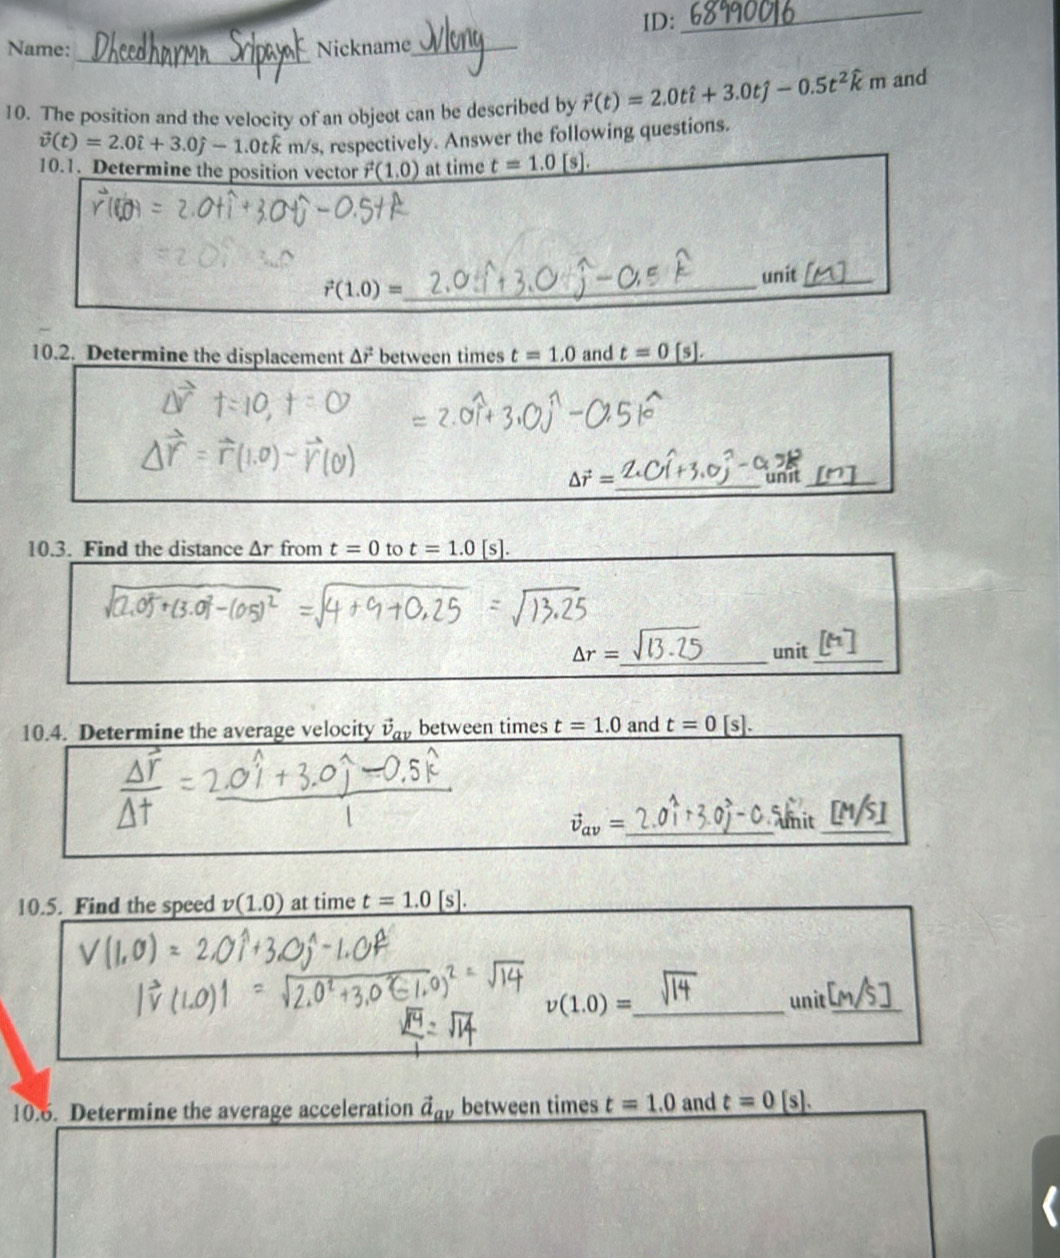 ID: 68990016
Name: Dheedharmn Sripayak Nickname
10. The position and the velocity of an object can be described by r⃗(t) = 2.0tî + 3.0tĵ − 0.5t²k̂ m and
v⃗(t) = 2.0î + 3.0ĵ − 1.0tk̂ m/s, respectively. Answer the following questions.
10.1. Determine the position vector r⃗(1.0) at time t = 1.0 [s].
= 2.0tî + 3.0tĵ − 0.5tk̂
= 2.0î 3.0
r⃗(1.0) = 2.0î + 3.0ĵ − 0.5k̂ unit [M]
10.2. Determine the displacement Δr⃗ between times t = 1.0 and t = 0 [s].
Δr⃗ t=10, t=0 = 2.0î + 3.0ĵ − 0.5k̂
Δr⃗ = r⃗(1.0) − r⃗(0)
Δr⃗ = 2.0î + 3.0ĵ − unit [m]
10.3. Find the distance Δr from t = 0 to t = 1.0 [s].
√(2.0)²+(3.0)²−(0.5)² = √4+9+0.25 = √13.25
Δr = √13.25 unit [M]
10.4. Determine the average velocity v⃗av between times t = 1.0 and t = 0 [s].
Δr⃗ = 2.0î + 3.0ĵ − 0.5k̂
Δt 1
v⃗av = 2.0î + 3.0ĵ − 0.5k̂ unit [M/S]
10.5. Find the speed v(1.0) at time t = 1.0 [s].
V(1.0) = 2.0î + 3.0ĵ − 1.0k̂
|v⃗(1.0)| = √2.0²+3.0²(−1.0)² = √14
v(1.0) = √14 unit [M/S]
= √14
1
10.6. Determine the average acceleration a⃗av between times t = 1.0 and t = 0 [s].